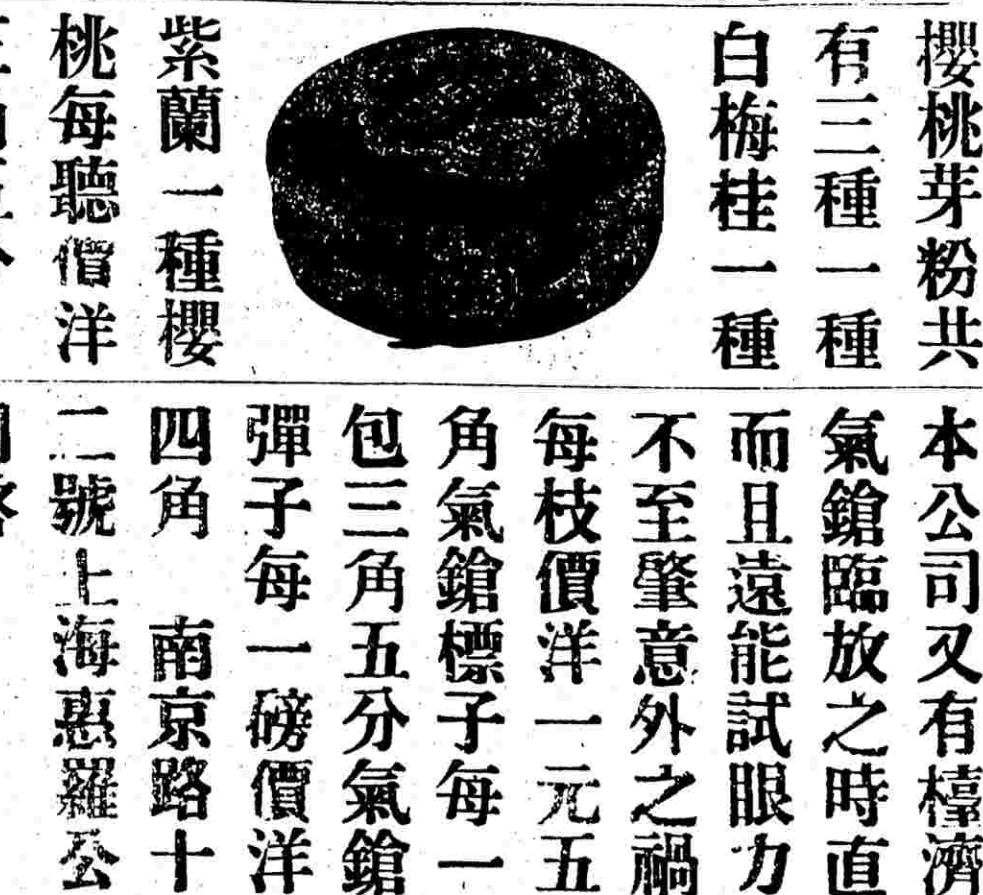 櫻桃芽粉共
有三種一種
白梅桂一種
紫蘭一種櫻
桃每聽價洋
本公司又有檯濟
氣鎗臨放之時直
而且遠能試眼力
不至肇意外之禍
每枝價洋一元五
角氣鎗標子每一
包三角五分氣鎗
彈子每一磅價洋
四角 南京路十
二號上海惠羅公